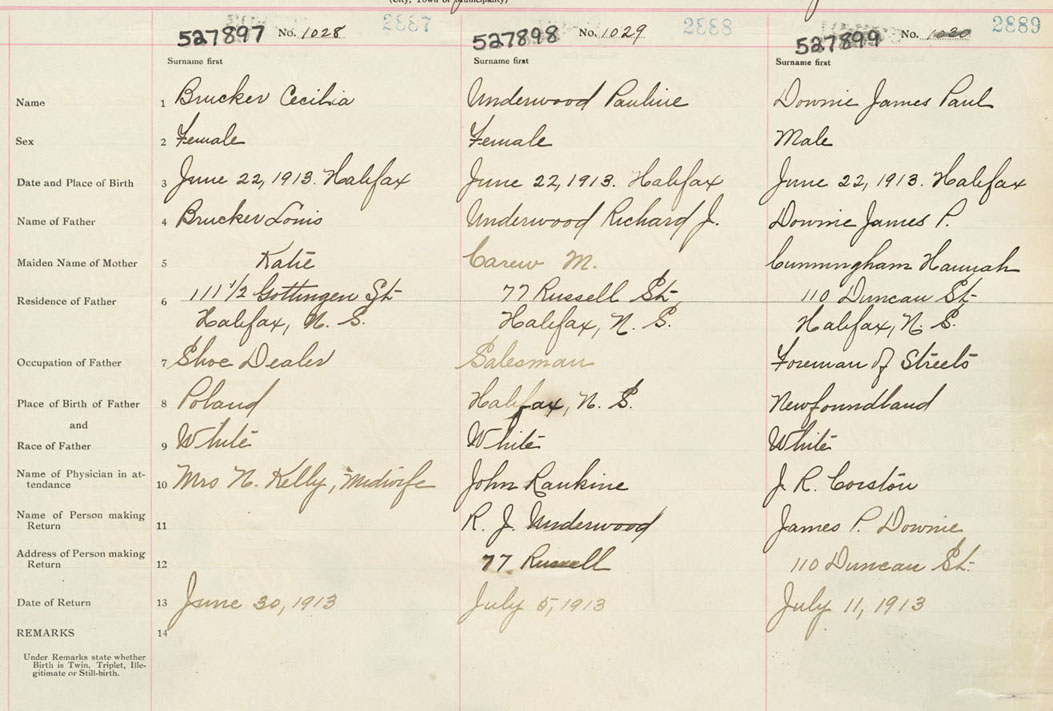 (City, Town or Municipality)
527897 No. 1028 2887 527898 No. 1029 2888 527899 No. 1030 2889
Surname first Surname first Surname first
Name 1 Brucker Cecilia Underwood Pauline Downie James Paul
Sex 2 Female Female Male
Date and Place of Birth 3 June 22, 1913. Halifax June 22, 1913. Halifax June 22, 1913. Halifax
Name of Father 4 Brucker Louis Underwood Richard J. Downie James P.
Maiden Name of Mother 5 Katie Carew M. Cunningham Hannah
Residence of Father 6 111 1/2 Gottingen St- 77 Russell St- 110 Duncan St-
Halifax, N. S. Halifax, N. S. Halifax, N. S.
Occupation of Father 7 Shoe Dealer Salesman Foreman of Streets
Place of Birth of Father 8 Poland Halifax, N. S. Newfoundland
and
Race of Father 9 White White White
Name of Physician in at-
tendance 10 Mrs N. Kelly, Midwife John Rankine J. R. Corston
Name of Person making
Return 11 R. J. Underwood James P. Downie
Address of Person making
Return 12 77 Russell 110 Duncan St-
Date of Return 13 June 30, 1913 July 5, 1913 July 11, 1913
REMARKS 14
Under Remarks state whether
Birth is Twin, Triplet, Ille-
gitimate or Still-birth.